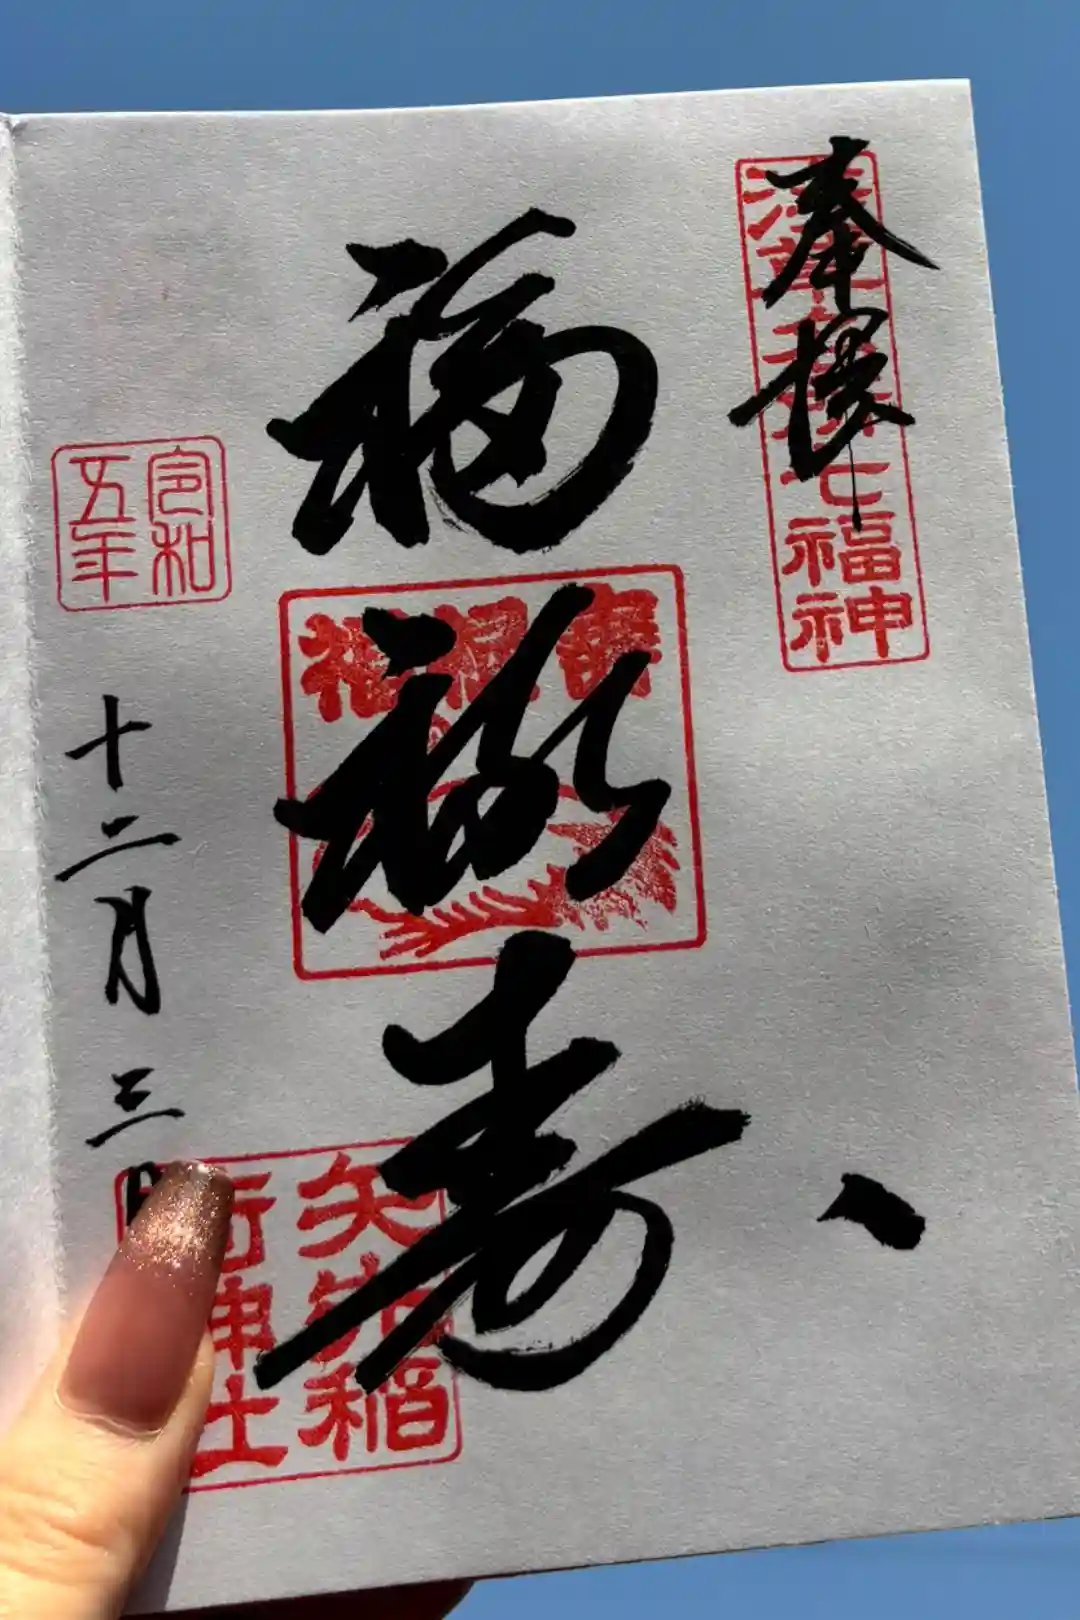 奉拝
浅草名所七福神
福禄寿
福禄壽
令和
五年
十二月三日
矢先稲
荷神社